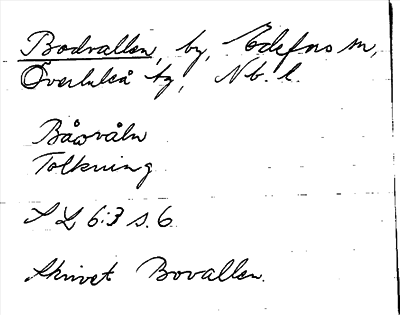 Bodvallen, by, Edefors sn,
Överluleå tg, Nb. l.
Båovåln
Tolkning
SL 6:3 s. 6
Skrivet Bovallen.